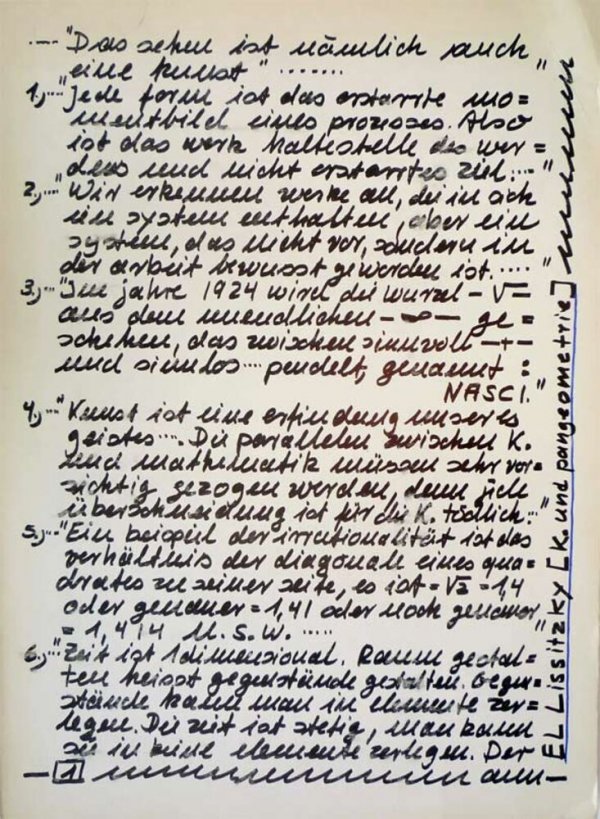 .—. "Das sehen ist nämlich auch
eine kunst" .......
1.,..."Jede form ist das erstarrte mo=
mentbild eines prozesses. Also
ist das werk haltestelle des wer=
dens und nicht erstarrtes ziel. ..."
2.,..."Wir erkennen werke an, die in sich
ein system enthalten, aber ein
system, das nicht vor, sondern in
der arbeit bewusst geworden ist. ...."
3.,..."Im jahre 1924 wird die wurzel – √ –
aus dem unendlichen – ∞ – ge=
schehen, das zwischen sinnvoll – + –
und sinnlos ... pendelt, genannt :
NASCI."
4.,..."Kunst ist eine erfindung unseres
geistes .... Die parallelen zwischen K.
und mathematik müssen sehr vor=
sichtig gezogen werden, denn jede
überschneidung ist für die K. tödlich. ..."
5.,..."Ein beispiel der irrationalität ist das
verhältnis der diagonale eines qua=
drates zu seiner seite, es ist = √2 = 1,4
oder genauer = 1,41 oder noch genauer
= 1,414 u. s. w. ....."
6.,..."Zeit ist 1dimensional. Raum gestal=
ten heisst gegenstände gestalten. Gegen=
stände kann man in elemente zer=
legen. Die zeit ist stetig, man kann
sie in keine elemente zerlegen. Der
— 1 — raum —
EL Lissitzky [K. und pangeometrie]